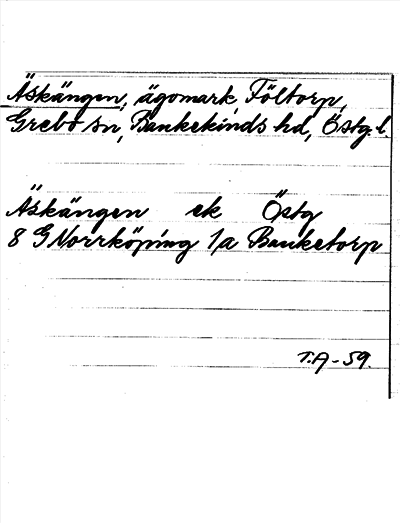 Äskängen, ägomark, Föltorp,
Grebo sn, Bankekinds hd, Östg. l.
Äskängen ek Östg
8 G Norrköping 1a Banketorp
T.A-59.